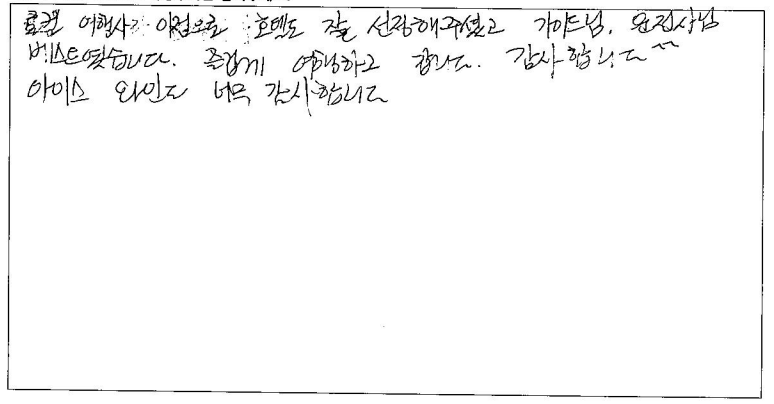 로컬 여행사 이점으로 호텔도 잘 선정해주셨고 가이드님, 운전사님
베스트였습니다. 즐겁게 여행하고 갑니다. 감사합니다^^
아이스 와인도 너무 감사합니다